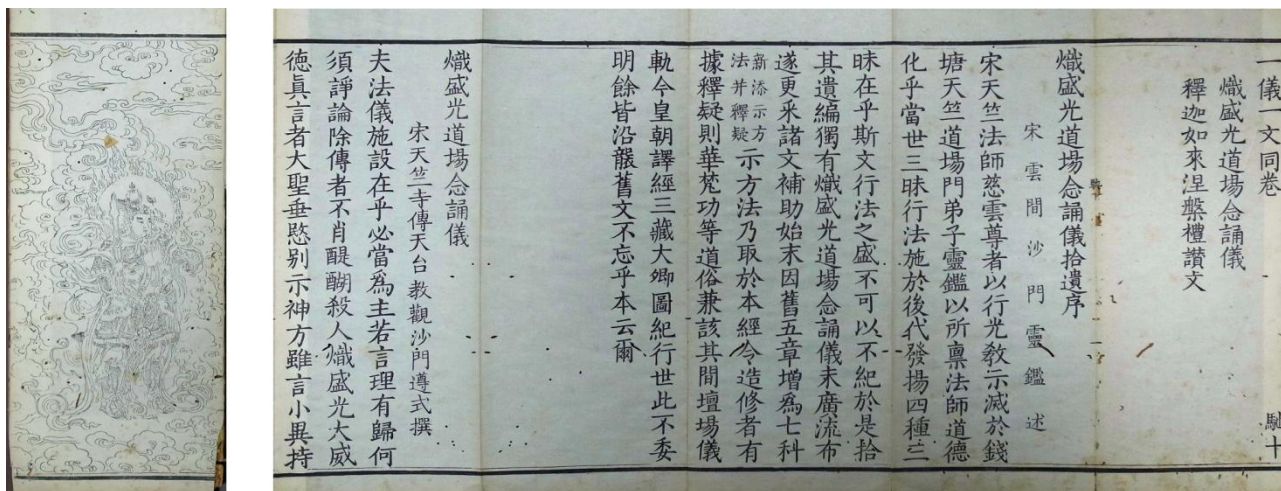 一儀一文同卷　馳十
熾盛光道場念誦儀
釋迦如來涅槃禮讚文
熾盛光道場念誦儀拾遺序
宋雲間沙門靈鑑述
宋天竺法師慈雲尊者以行光教示滅於錢
塘天竺道場門弟子靈鑑以所稟法師道德
化乎當世三昧行法施於後代發揚四種三
昧在乎斯文行法之盛不可以不紀於是拾
其遺編獨有熾盛光道場念誦儀未廣流布
遂更采諸文補助始末因舊五章增爲七科
新添示方
法并釋疑
示方法乃取於本經令造修者有
據釋疑則華梵功等道俗兼該其間壇場儀
軌今皇朝譯經三藏大卿圖紀行世此不委
明餘皆沿襲舊文不忘乎本云爾
熾盛光道場念誦儀
宋天竺寺傳天台教觀沙門遵式撰
夫法儀施設在乎必當爲主若言理有歸何
須諍論除傳者不肖醍醐殺人熾盛光大威
德眞言者大聖垂愍别示神方雖言小異持